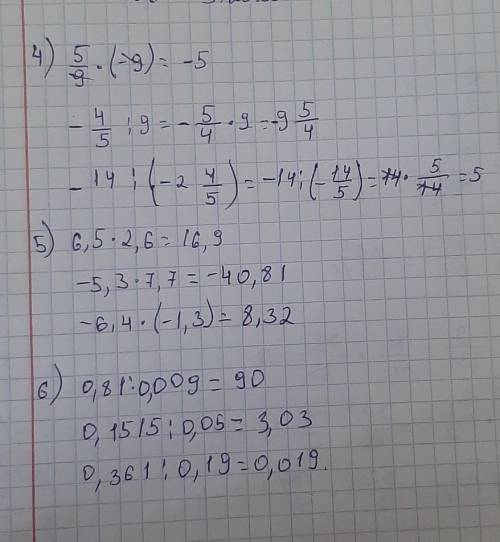 4) 5/9 · (-9) = -5
- 4/5 : 9 = - 5/4 · 9 = -9 5/4
- 14 : (-2 4/5) = -14 : (- 14/5) = 14 · 5/14 = 5
5) 6,5 · 2,6 = 16,9
-5,3 · 7,7 = -40,81
-6,4 · (-1,3) = 8,32
6) 0,81 : 0,009 = 90
0,1515 : 0,05 = 3,03
0,361 : 0,19 = 0,019.